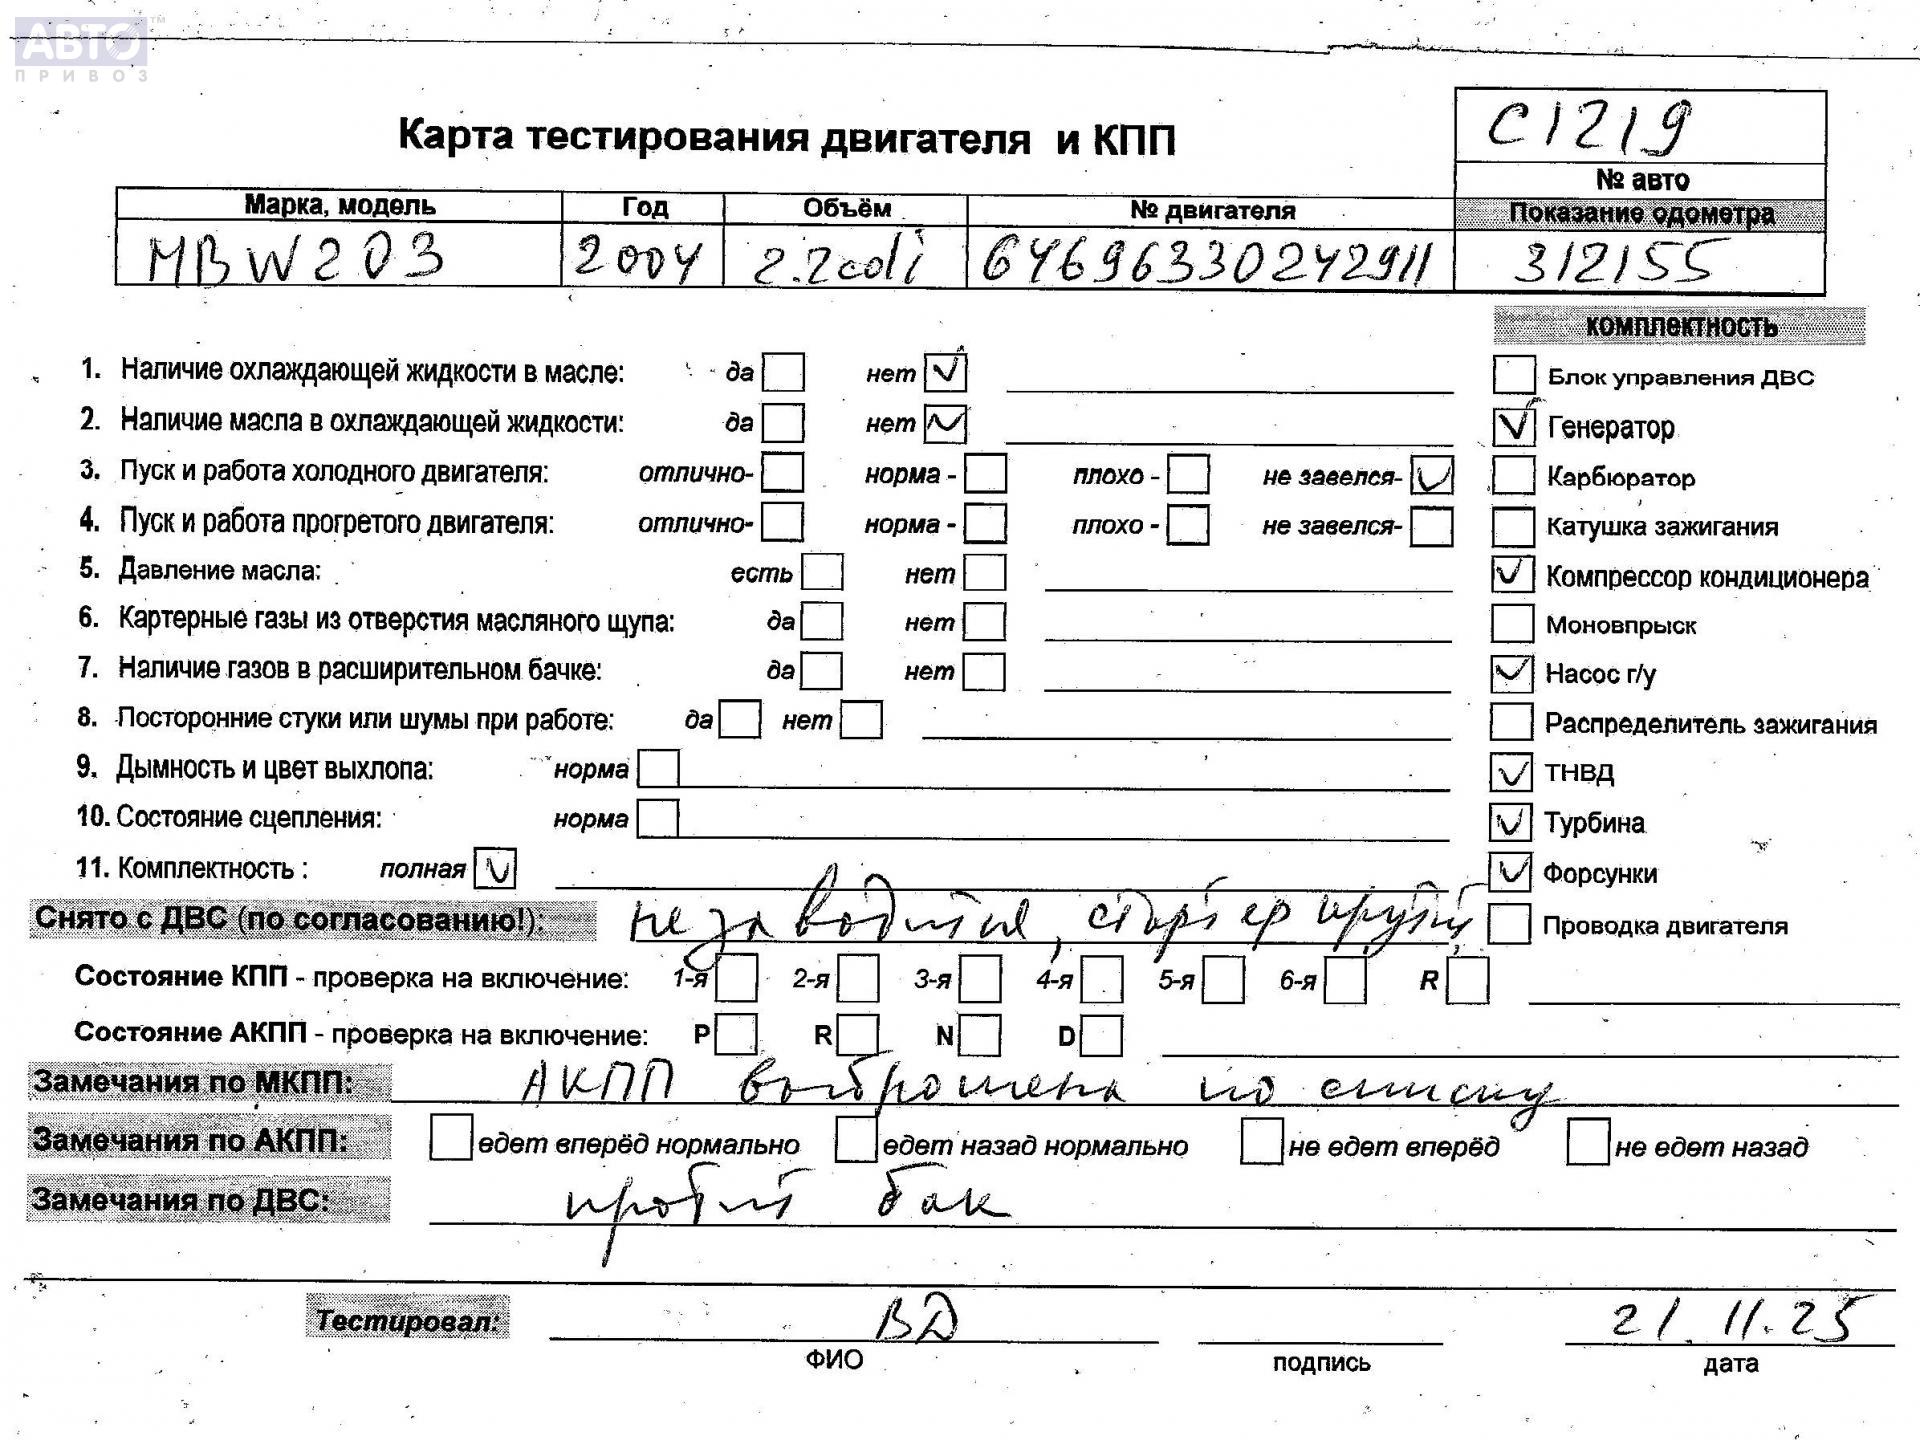 АВТО™
ПРИВОЗ
С1219
Карта тестирования двигателя и КПП
№ авто
Марка, модель Год Объём № двигателя Показание одометра
MB W203 2004 2.2cdi 64696330242911 312155
комплектность
1. Наличие охлаждающей жидкости в масле: да нет ✓ Блок управления ДВС
2. Наличие масла в охлаждающей жидкости: да нет ✓ ✓ Генератор
3. Пуск и работа холодного двигателя: отлично- норма - плохо - не завелся- ✓ Карбюратор
4. Пуск и работа прогретого двигателя: отлично- норма - плохо - не завелся- Катушка зажигания
5. Давление масла: есть нет ✓ Компрессор кондиционера
6. Картерные газы из отверстия масляного щупа: да нет Моновпрыск
7. Наличие газов в расширительном бачке: да нет ✓ Насос г/у
8. Посторонние стуки или шумы при работе: да нет Распределитель зажигания
9. Дымность и цвет выхлопа: норма ✓ ТНВД
10. Состояние сцепления: норма ✓ Турбина
11. Комплектность : полная ✓ ✓ Форсунки
Снято с ДВС (по согласованию!): не заводится, стартер крутит Проводка двигателя
Состояние КПП - проверка на включение: 1-я 2-я 3-я 4-я 5-я 6-я R
Состояние АКПП - проверка на включение: P R N D
Замечания по МКПП: АКПП выброшена по списку
Замечания по АКПП: едет вперёд нормально едет назад нормально не едет вперёд не едет назад
Замечания по ДВС: пробит бак
Тестировал: ВД 21.11.25
ФИО подпись дата